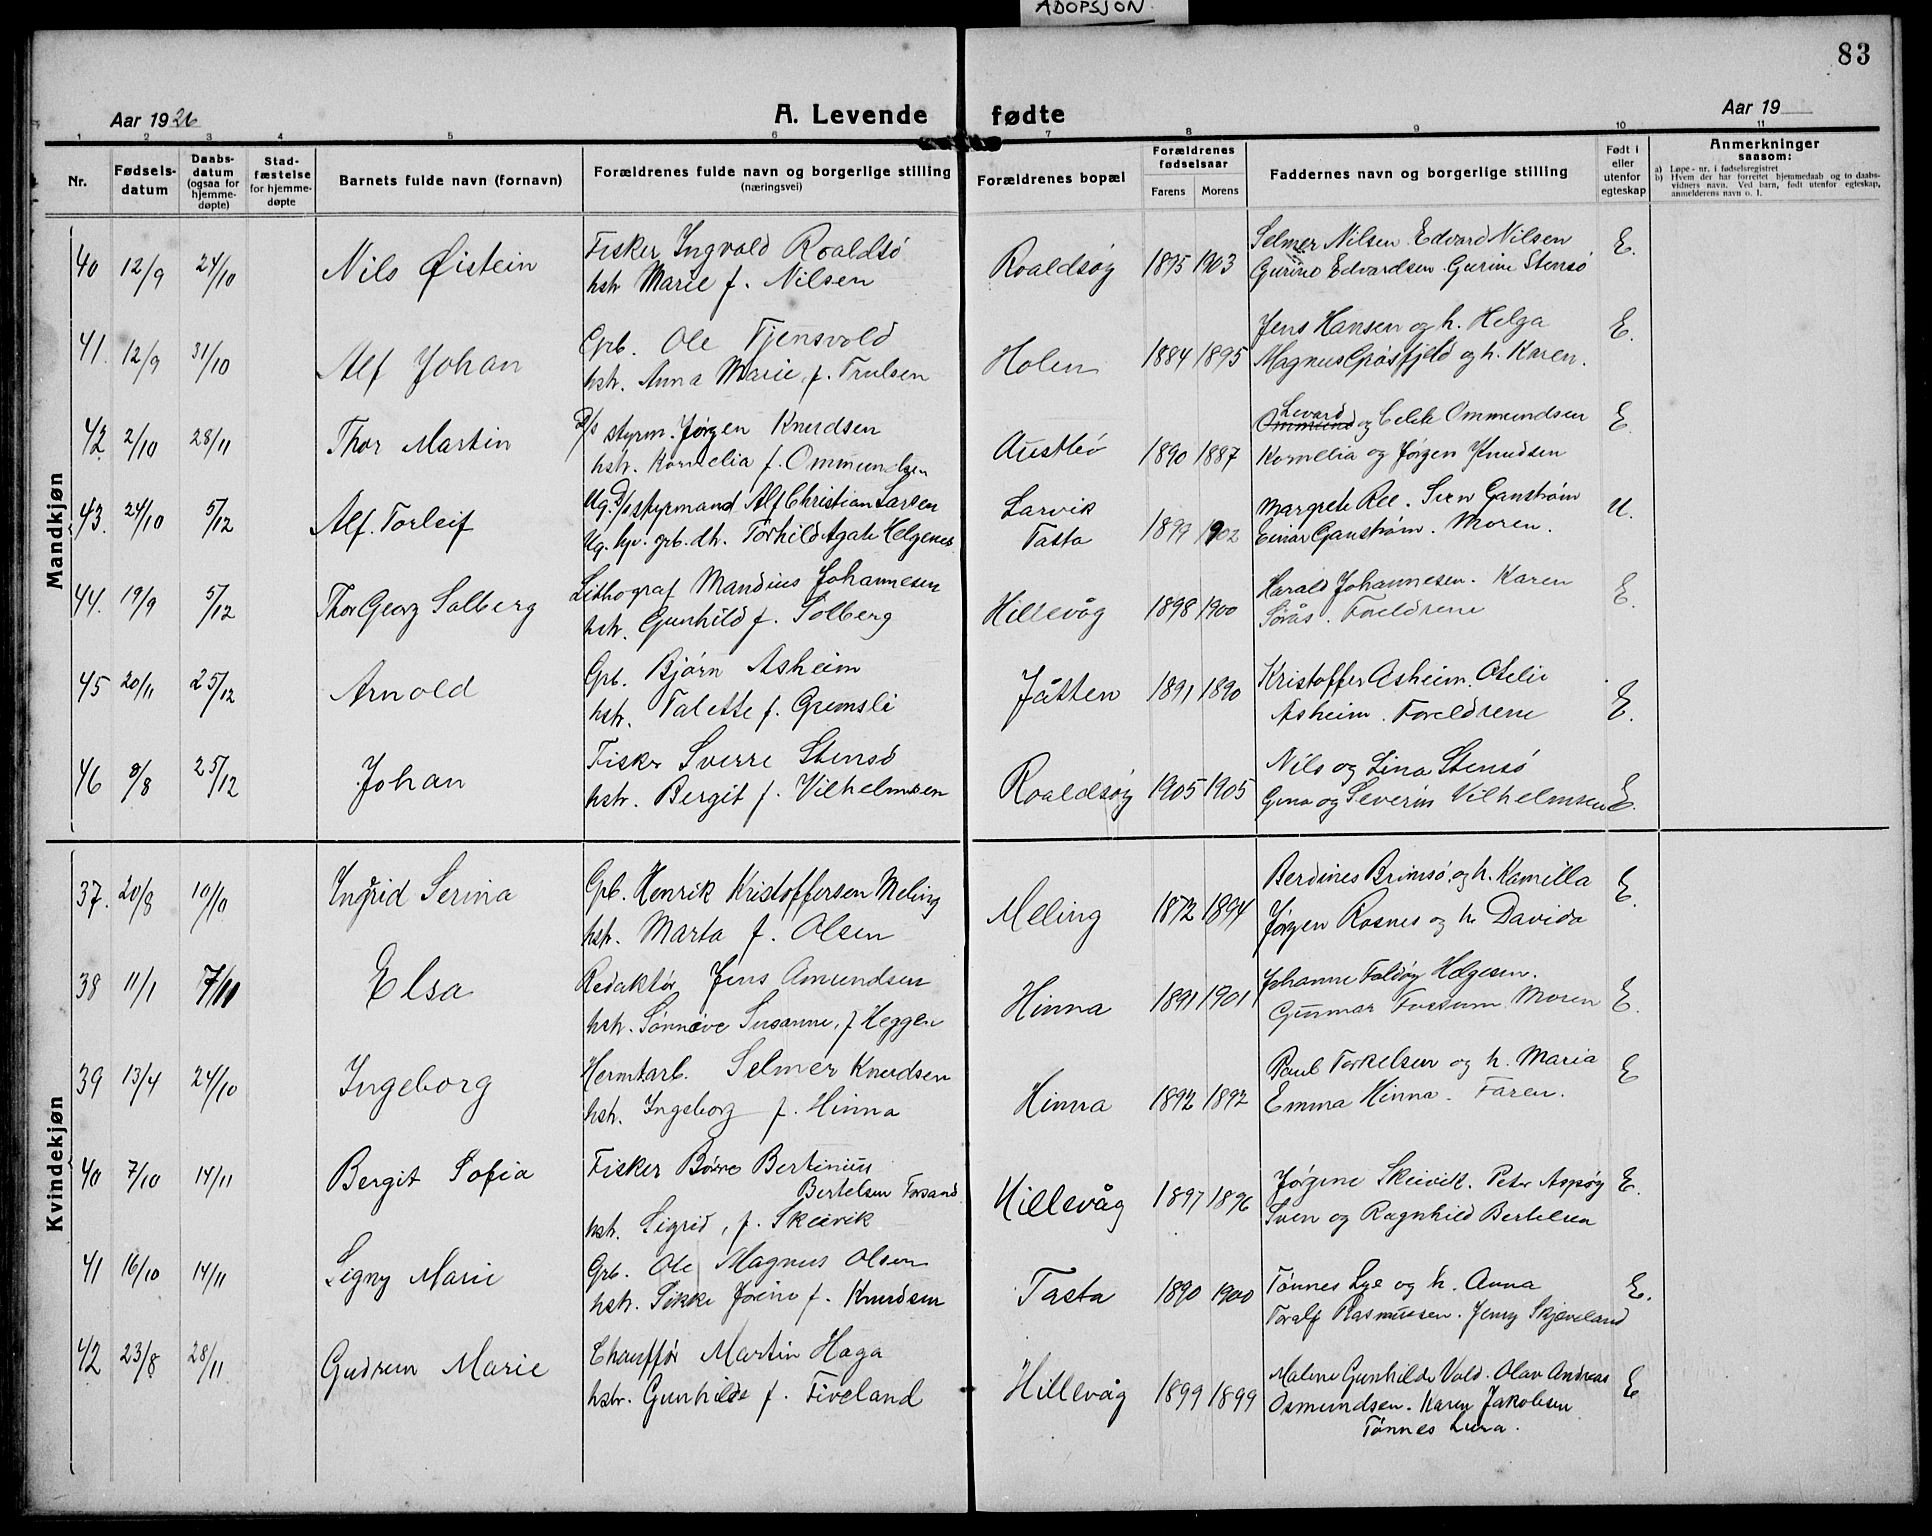 ADOPSJON.
83
Aar 1926
A. Levende fødte
Aar 19
1 2 3 4 5 6 7 8 9 10 11
Nr.
Fødsels-
datum
Daabs-
datum
(ogsaa for
hjemme-
døpte)
Stad-
fæstelse
for hjemme-
døpte
Barnets fulde navn (fornavn)
Forældrenes fulde navn og borgerlige stilling
(næringsvei)
Forældrenes bopæl
Forældrenes
fødselsaar
Farens Morens
Faddernes navn og borgerlige stilling
Født i
eller
utenfor
egteskap
Anmerkninger
saasom:
a) Løpe-nr. i fødselsregistret
b) Hvem der har forrettet hjemmedaab og to daabs-
vidners navn. Ved barn, født utenfor egteskap,
anmelderens navn o. l.
Mandkjøn
40 12/9 24/10 Nils Øistein Fisker Ingvald Roaldsø Roaldsøy 1895 1903 Selmer Nilsen. Edvard Nilsen E.
hstr Marie f. Nilsen Gurine Edvardsen. Gurine Stensø
41. 12/9 31/10 Alf Johan Gpb. Ole Tjensvold Holen 1884 1895 Jens Hansen og h. Helga E.
hstr. Anna Marie, f. Trulsen Magnus Gråsfjeld og h. Karen.
42 2/10 28/11 Thor Martin D/s styrm. Jørgen Knudsen Austbø 1890 1887 Levard og Celie Ommundsen E.
hstr. Kornelia f. Ommundsen Kornelia og Jørgen Knudsen
43. 24/10 5/12 Alf. Torleif Ug. D/s styrmand Alf Christian Larsen Larvik 1899 1902 Margrete Ree. Sven Ganstrøm U.
Ug. hp. gpb. dtr. Torhild Agate Helgenes Tasta Einar Ganstrøm. Moren.
44. 19/9 5/12 Thor Georg Solberg Lithograf Mandius Johannesen Hillevåg 1898 1900 Harald Johannesen. Karen E.
hstr. Gunhild f. Solberg Sørås. Foreldrene
45 20/11 25/12 Arnold Gpb. Bjørn Asheim Jåtten 1891 1890 Kristoffer Asheim. Otelie
hstr. Talette f. Gremsli Asheim. Foreldrene E.
46 8/8 25/12 Johan Fisker Sverre Stensø Roaldsøy 1905 1905 Nils og Lina Stensø
hstr. Bergit f. Vilhelmsen Gina og Severin Vilhelmsen E.
Kvindekjøn
37. 20/8 10/10 Ingrid Serina Gpb. Henrik Kristoffersen Meling Meling 1872 1894 Berdines Brimsø og h. Kamilla E.
hstr. Marta f. Olsen Jørgen Rosnes og h. Davida
38 11/1 7/11 Elsa Redaktør Jens Amundsen Hinna 1891 1901 Johanne Foldøy Helgesen.
hstr. Sønneve Susanne, f Heggen Gunnar Fossum. Moren E.
39 13/4 24/10 Ingeborg Hermt.arb. Selmer Knudsen Hinna 1892 1892 Paul Torkelsen og h. Maria E
hstr. Ingeborg f. Hinna Emma Hinna. Faren.
40 7/10 14/11 Bergit Sofia Fisker Børre Bertinius Hillevåg 1897 1896 Jørgine Skeivik. Peter Aspøy E.
Bertelsen Forsand
hstr. Sigrid, f. Skeivik Sven og Ragnhild Bertelsen
41 16/10 14/11 Signy Marie Gpb. Ole Magnus Olsen Tasta 1890 1900 Tønnes Lye og h. Anna E.
hstr. Sikke Jorine f. Knudsen Toralf Rasmussen. Jenny Skjæveland
42 23/8 28/11 Gudrun Marie Chauffør Martin Haga Hillevåg 1899 1899 Malene Gunhilde Vold. Olav Andreas E
hstr. Gunhilde f. Fiveland Osmundsen. Karen Jakobsen
Tønnes Lura.